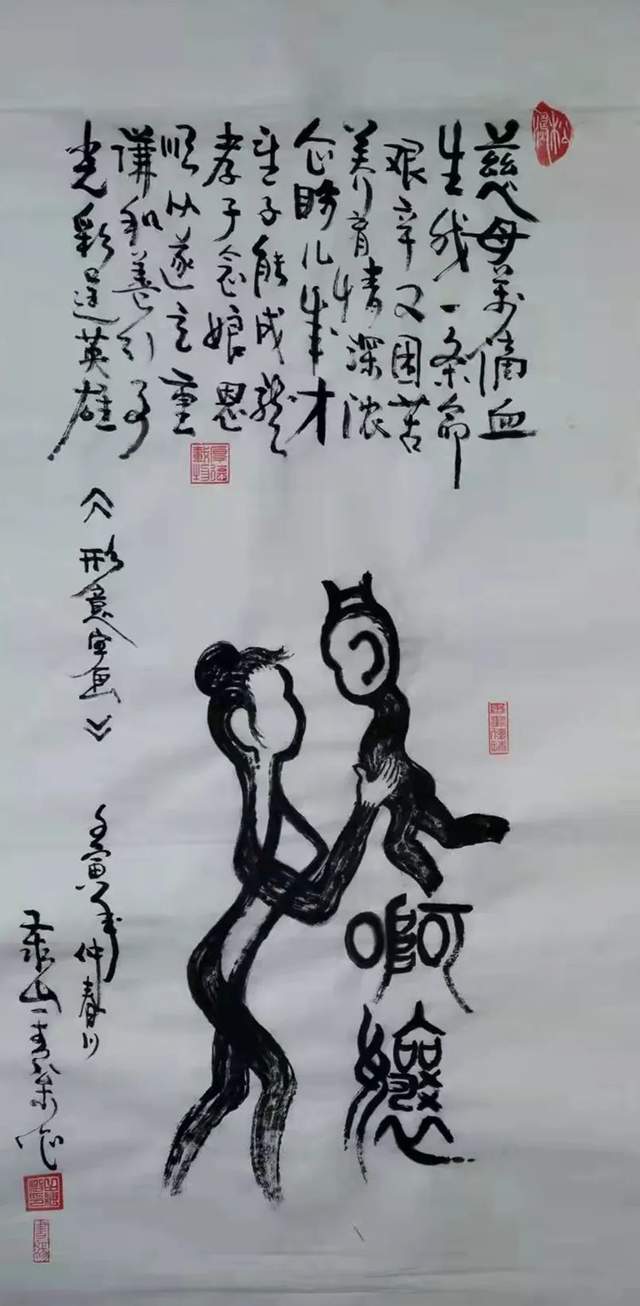 慈母萬滴血
生我一条命
艰辛又困苦
养育情深浓
企盼儿成才
望子能成龙
孝子念娘恩
顺从遂言重
谦和善行
光彩是英雄
厚德载物
《形意字画》
啊
壬寅年仲春月
泰山一
作